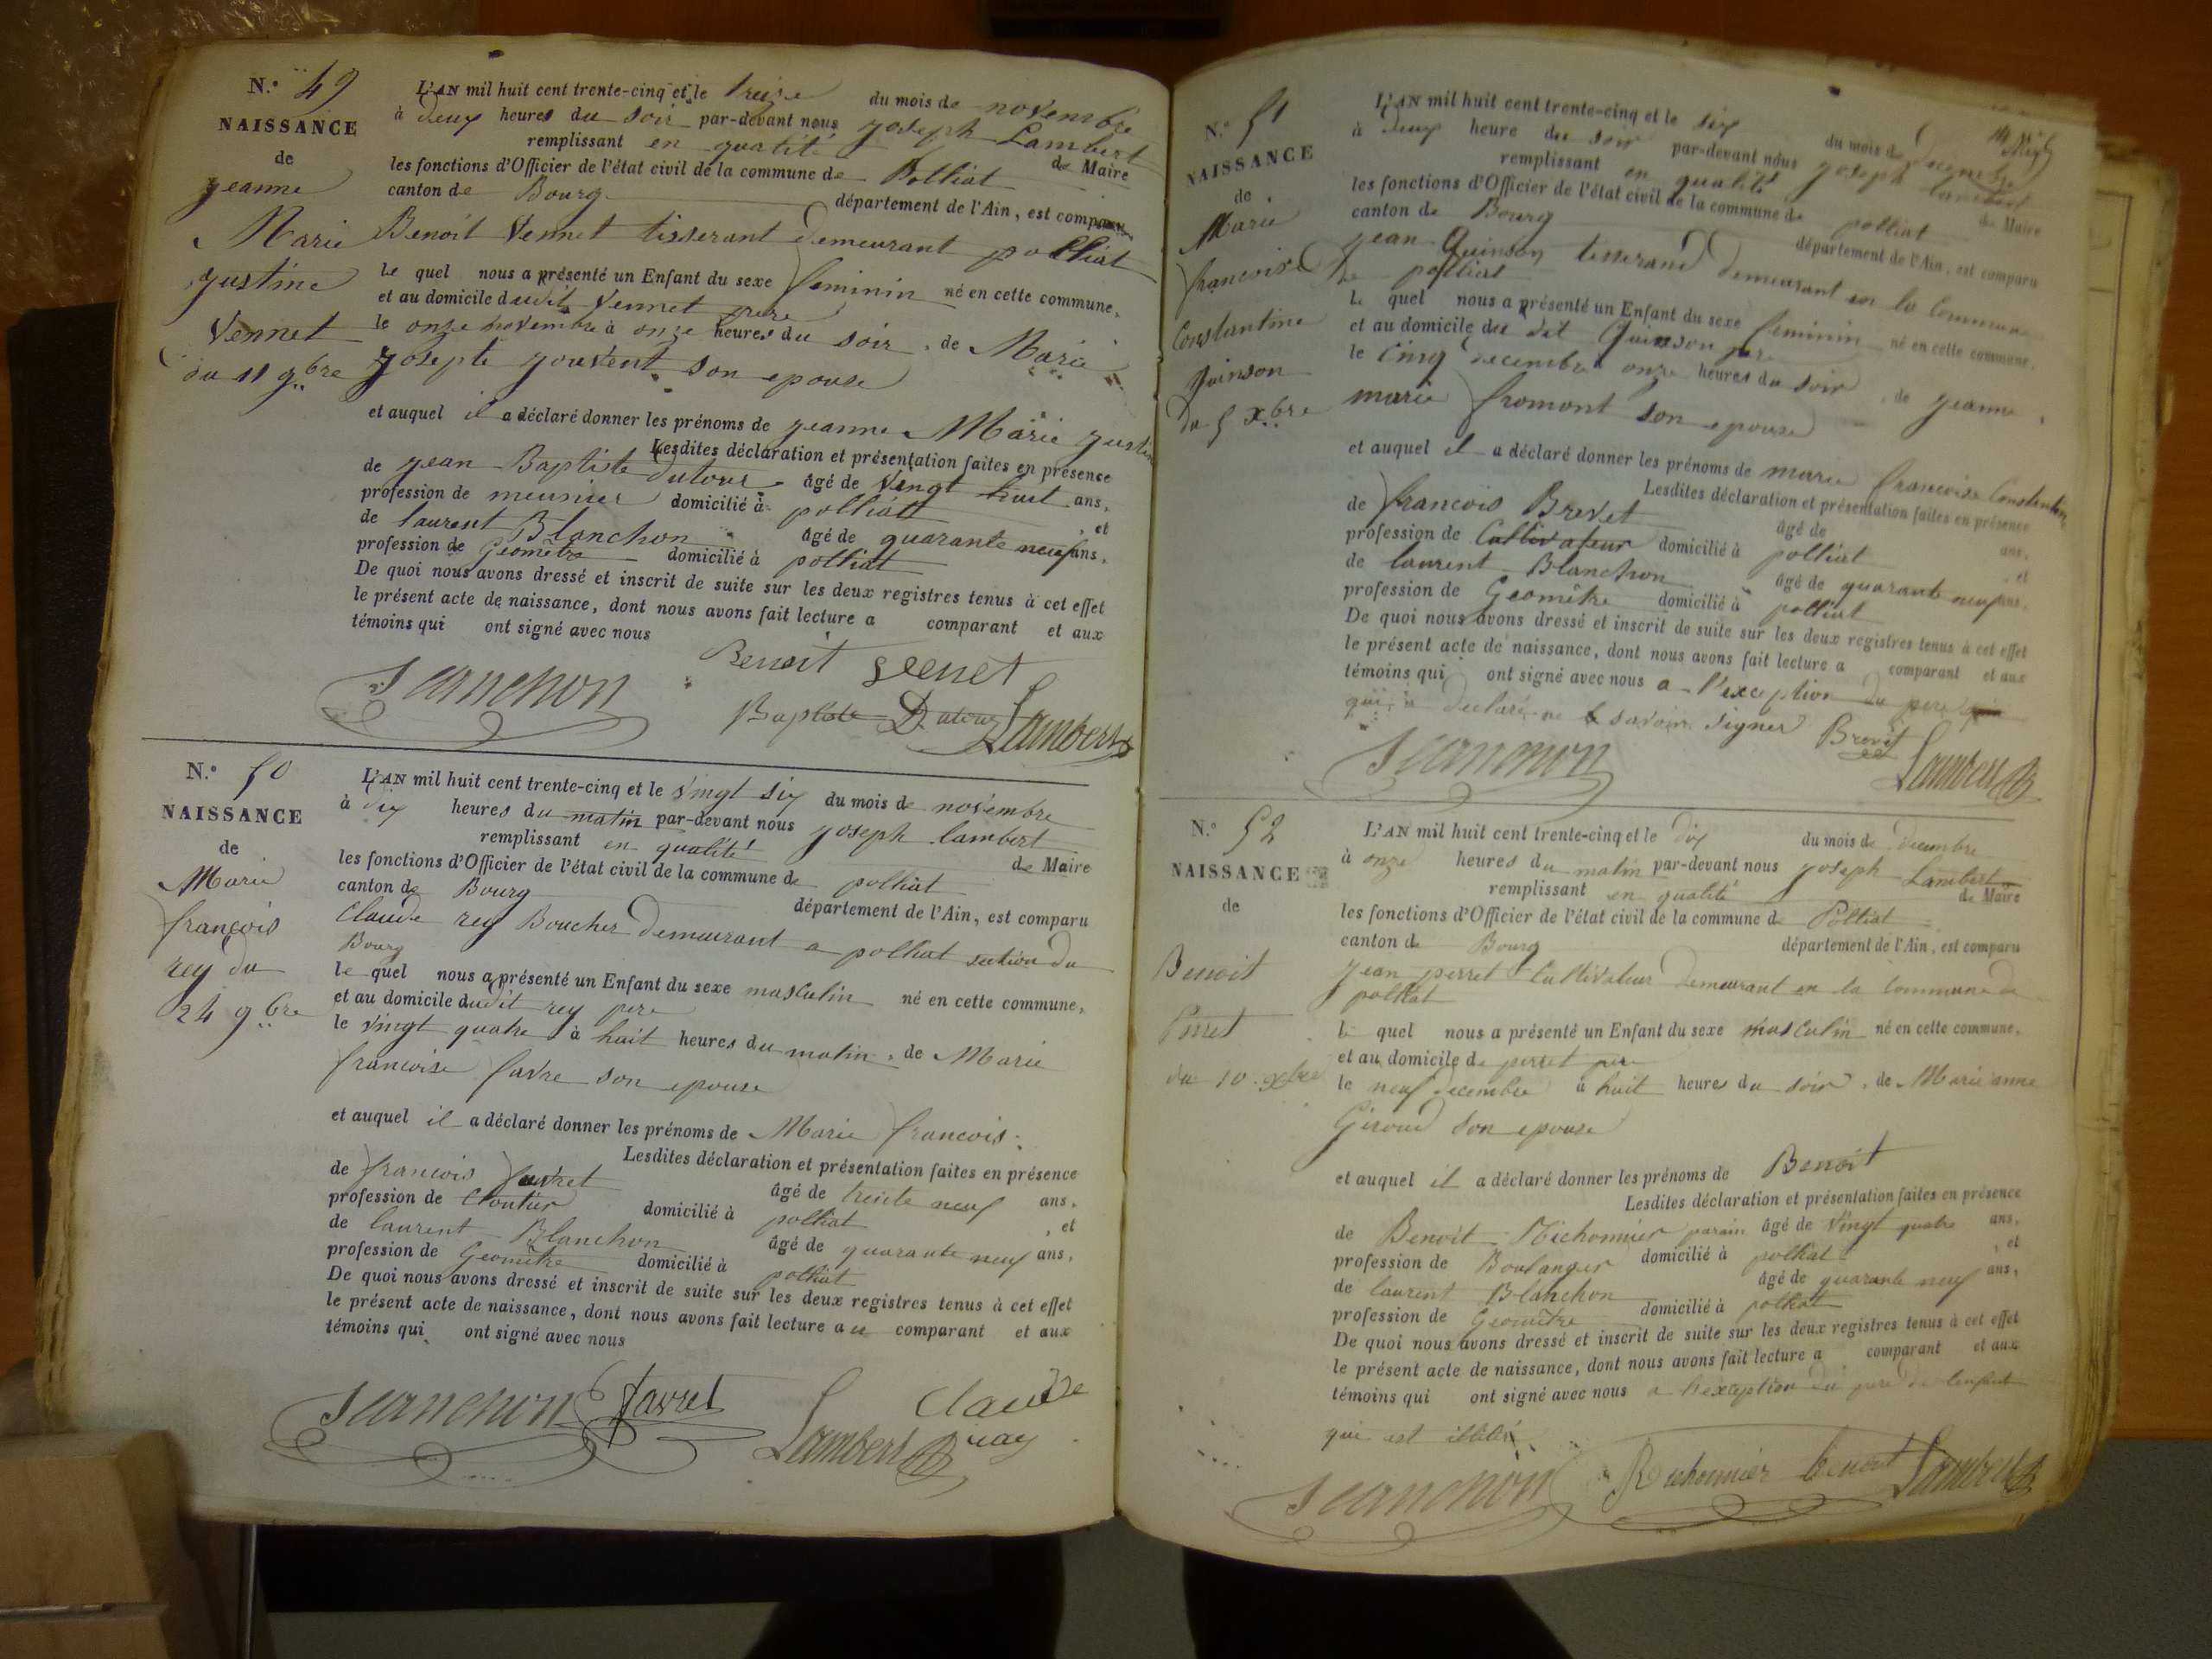 N.° 49
NAISSANCE
de
jeanne
Marie
justine
Vennet
du 11 9bre
L'AN mil huit cent trente-cinq et le treize du mois de novembre
à deux heures du soir par-devant nous joseph Lambert
remplissant en qualité de Maire
les fonctions d'Officier de l'état civil de la commune de Polliat
canton de Bourg département de l'Ain, est comparu
Benoit Vennet tisserant demeurant polliat
le quel nous a présenté un Enfant du sexe feminin né en cette commune,
et au domicile dudit Vennet pere
le onze novembre à onze heures du soir, de Marie
josepte jouvent son epouse
et auquel il a déclaré donner les prénoms de jeanne Marie justine
Lesdites déclaration et présentation faites en présence
de jean Baptiste dutour âgé de vingt huit ans,
profession de meunier domicilié à polliat, et
de laurent Blanchon âgé de quarante neuf ans,
profession de Geomètre domicilié à polliat
De quoi nous avons dressé et inscrit de suite sur les deux registres tenus à cet effet
le présent acte de naissance, dont nous avons fait lecture a comparant et aux
témoins qui ont signé avec nous
Benoit
Blanchon
Baptiste Dutour Lambert
N.° 50
NAISSANCE
de
Marie
françois
rey du
24 9bre
L'AN mil huit cent trente-cinq et le vingt six du mois de novembre
à dix heures du matin par-devant nous joseph lambert
remplissant en qualité de Maire
les fonctions d'Officier de l'état civil de la commune de polliat
canton de Bourg département de l'Ain, est comparu
Claude rey Boucher demeurant a polliat section du
Bourg
le quel nous a présenté un Enfant du sexe masculin né en cette commune,
et au domicile dudit rey pere
le vingt quatre à huit heures du matin, de Marie
francoise favre son epouse
et auquel il a déclaré donner les prénoms de Marie francois
Lesdites déclaration et présentation faites en présence
de francois favret âgé de trente neuf ans,
profession de Cloutier domicilié à polliat, et
de laurent Blanchon âgé de quarante neuf ans,
profession de Geomètre domicilié à polliat
De quoi nous avons dressé et inscrit de suite sur les deux registres tenus à cet effet
le présent acte de naissance, dont nous avons fait lecture au comparant et aux
témoins qui ont signé avec nous
Blanchon favret Claude
Lambert ray
N.° 51
NAISSANCE
de
Marie
francoise
Constantine
Quinson
du 5 Xbre
L'AN mil huit cent trente-cinq et le six du mois de decembre
à deux heure du soir par-devant nous joseph lambert
remplissant en qualité de Maire
les fonctions d'Officier de l'état civil de la commune de polliat
canton de Bourg département de l'Ain, est comparu
jean Quinson tisserand demeurant en la commune
de polliat
le quel nous a présenté un Enfant du sexe feminin né en cette commune,
et au domicile du dit Quinson pere
le cinq decembre onze heures du soir, de jeanne
marie fromont son epouse
et auquel il a déclaré donner les prénoms de marie francoise Constantine
Lesdites déclaration et présentation faites en présence
de francois Brevet âgé de ans,
profession de Cultivateur domicilié à polliat, et
de laurent Blanchon âgé de quarante neuf ans,
profession de Geomètre domicilié à polliat
De quoi nous avons dressé et inscrit de suite sur les deux registres tenus à cet effet
le présent acte de naissance, dont nous avons fait lecture a comparant et aux
témoins qui ont signé avec nous a l'exception du pere
qui a declaré ne savoir signer Brevet
Blanchon Lambert
N.° 52
NAISSANCE
de
Benoit
Perret
du 10 Xbre
L'AN mil huit cent trente-cinq et le dix du mois de decembre
à onze heures du matin par-devant nous joseph Lambert
remplissant en qualité de Maire
les fonctions d'Officier de l'état civil de la commune de Polliat
canton de Bourg département de l'Ain, est comparu
jean perret Cultivateur demeurant en la commune de
polliat
le quel nous a présenté un Enfant du sexe masculin né en cette commune,
et au domicile de perret pere
le neuf decembre à huit heures du soir, de Marie anne
Giroud son epouse
et auquel il a déclaré donner les prénoms de Benoit
Lesdites déclaration et présentation faites en présence
de Benoit Richonnier parain âgé de vingt quatre ans,
profession de Boulanger domicilié à polliat, et
de laurent Blanchon âgé de quarante neuf ans,
profession de Geomètre domicilié à polliat
De quoi nous avons dressé et inscrit de suite sur les deux registres tenus à cet effet
le présent acte de naissance, dont nous avons fait lecture a comparant et aux
témoins qui ont signé avec nous a l'exception du pere de lenfant
qui est
Blanchon Richonnier benoit Lambert